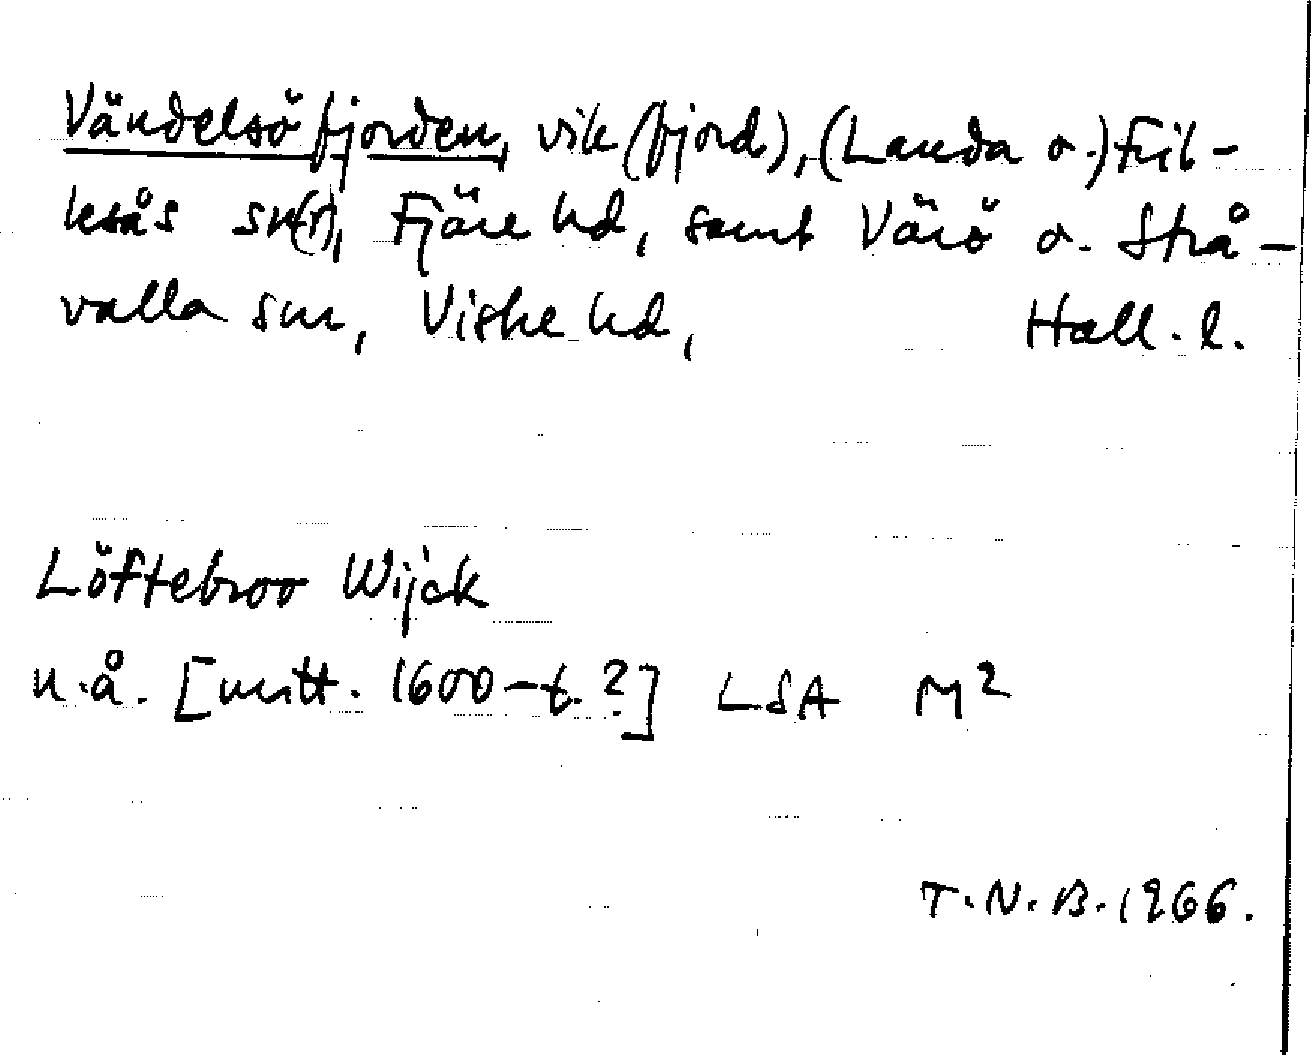 Vändelsöfjorden, vik (fjord), (Landa o.) Fril-
lesås sn(r), Fjäre hd, samt Värö o. Strå-
valla snr, Viske hd, Hall. l.
Löftebroo Wijck
u.å. [mitt. 1600-t.?] LSA M²
T.N.B. 1966.